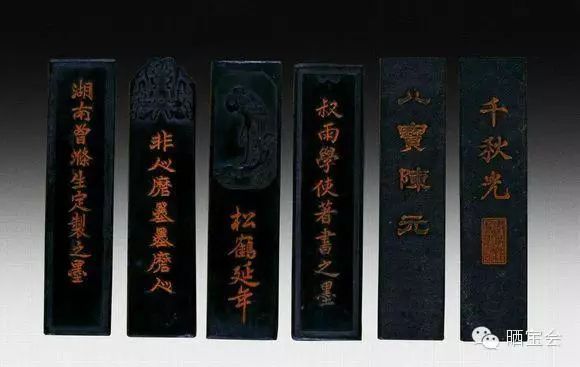 湖南曾滌生定製之墨
非人磨墨墨磨人
松鶴延年
叔雨學使著書之墨
八寶陳元
千秋光
晒宝会